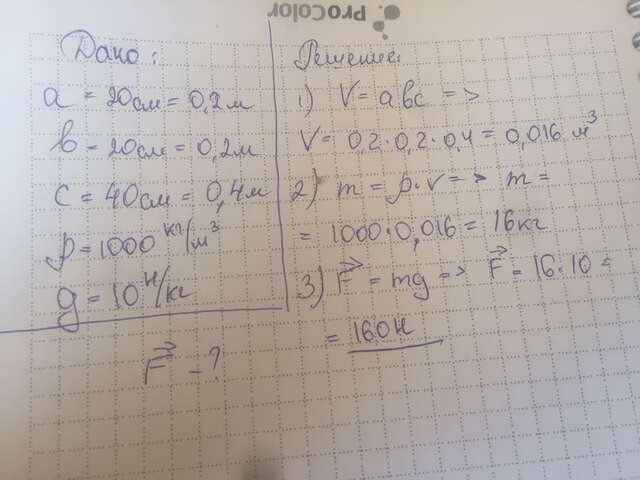 ProColor
Дано:
a = 20см = 0,2м
b = 20см = 0,2м
c = 40см = 0,4м
ρ = 1000 кг/м³
g = 10 Н/кг
F⃗ - ?
Решение:
1) V = abc =>
V = 0,2·0,2·0,4 = 0,016 м³
2) m = ρv => m =
= 1000·0,016 = 16кг
3) F⃗ = mg => F⃗ = 16·10 =
= 160Н